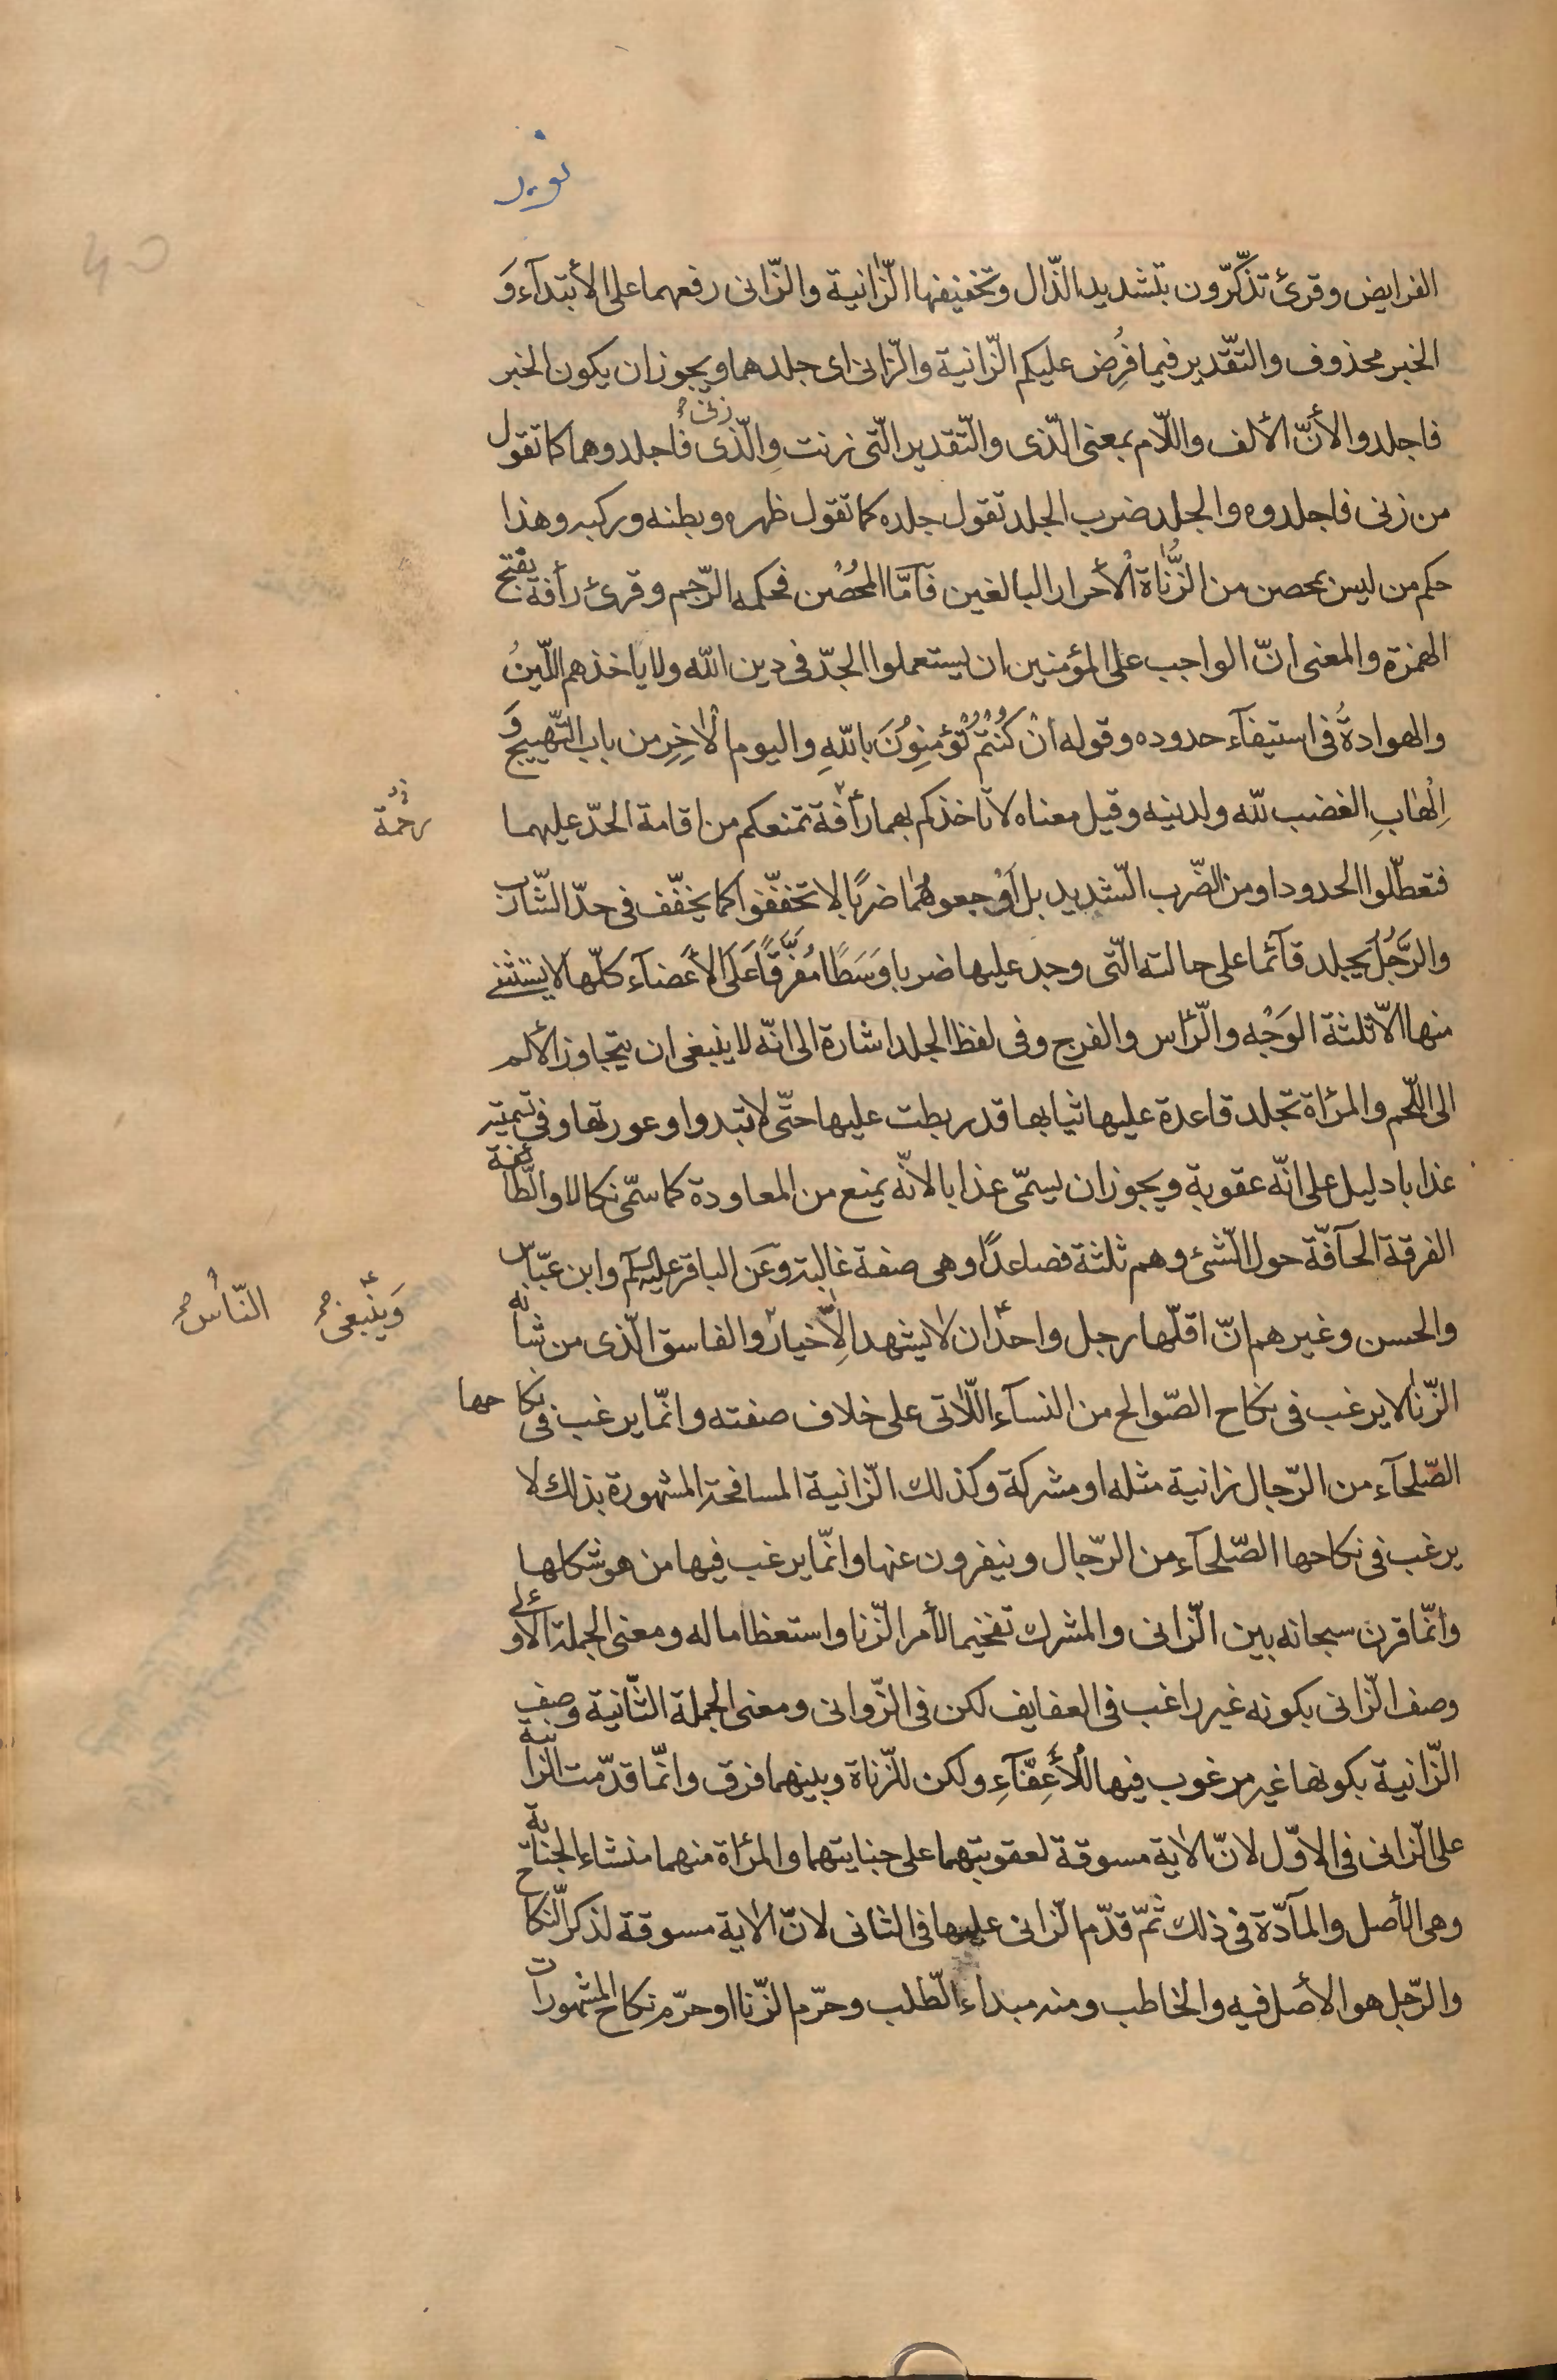 نوير
الفرايض وقرئ تذّكّرون بتشديد الذّال وتخفيفها الزّانية والزّانى رفعهما على الأبتدآء وَ
الخبر محذوف والتّقدير فيما فُرِض عليكم الزّانية والزّانى اى جلدهما ويجوز ان يكون الخبر
زنى
فاجلدوا لأنّ الألف واللّام بمعنى الّذى والتّقدير الّتى زنت والّذى فاجلدوهما كما تقول
من زنى فاجلدوه والجلد ضرب الجلد تقول جلده كما تقول ظهره وبطنه وركبه وهذا
حكم من ليس بمحصن من الزُّناة الأحرار البالغين فآمّا المُحْصَن فحكمه الرّجم وقرئ رأفة بفتح
الهمزة والمعنى انّ الواجب على المؤمنين ان يستعملوا الجدّ فى دين اللّه ولا ياخذهم اللّينُ
والهوادةُ فى استيفآء حدوده وقوله انْ كُنْتُمْ تُؤمِنوُنَ باللّهِ واليوم الْاٰخِرِ من باب التّهييج وَ
اِلْهٰابِ الغضب للّه ولدينه وقيل معناه لا تاخذكم بهما رأفة تمنعكم من اقامة الحدّ عليهما
رحْمة
فتعطّلوا الحدود او من الضّرب الشّديد بل اَوْجعوهُمٰا ضربًا لا تخفّفوا كما يخفّف فى حدّ الشّارب
والرَّجُلُ يجلد قآئما على حالته الّتى وجد عليها ضربا وَسَطًا مُفَرَّقًا عَلَى الأَعْضآء كلّها لا يستثنى
منها الّا ثلثة الوَجْه والرّأس والفرج وفى لفظ الجلد اشارة الى انّه لا ينبغى ان يتجاوز الألم
الى اللّحم والمرأة تجلد قاعدة عليها ثيابها قد ربطت عليها حتّى لا تبدوا وعورتها وفى تسميته
عذابا دليل على انّه عقوبة ويجوز ان يسمّى عذابا لانّه يمنع من المعاودة كما سمّى نكالا والطّائفة
الفرقة الحآفّة حول الشّئ وهم ثلثة فصاعدًا وهى صفة غالبة وعَن الباقر عليه السّلم وابن عبّاس
وَينْبغى النّاس
والحسن وغيرهم انّ اقلّها رجل واحد ان لا يشهد الّا خيار والفاسق الّذى من شانه
الزّنا لا يرغب فى نكاح الصّوالح من النسآء اللّاتى على خلاف صفته وانّما يرغب فى نكاحها
الصّلحآء من الرّجال زانية مثله او مشركة وكذلك الزّانية المسافحة المشهورة بذلك لا
يرغب فى نكاحها الصّلحآء من الرّجال وينفرون عنها وانّما يرغب فيها من هو شكلها
وانّما قرن سبحانه بين الزّانى والمشرك تفخيما لأمر الزّنا واستعظاما له ومعنى الجملة الأولى
وصف الزّانى بكونه غير راغب فى العفايف لكن فى الزّوانى ومعنى الجملة الثّانية وصف
الزّانية بكونها غير مرغوب فيها للْأَعِفّآءِ ولكن للزّناة وبينهما فرق وانّما قدّمت الزّانية
على الزّانى فى الاوّل لانّ الاٰية مسوقة لعقوبتهما على جنايتهما والمرأة منهما منشاء الجناية
وهى الأصل والمآدّة فى ذلك ثمّ قدّم الزّانى عليها فى الثانى لانّ الاٰية مسوقة لذكر النّكاح
والرّجل هو الأصل فيه والخاطب ومنه مبداء الطّلب وحرّم الزّنا او حرّم نكاح المشهورات